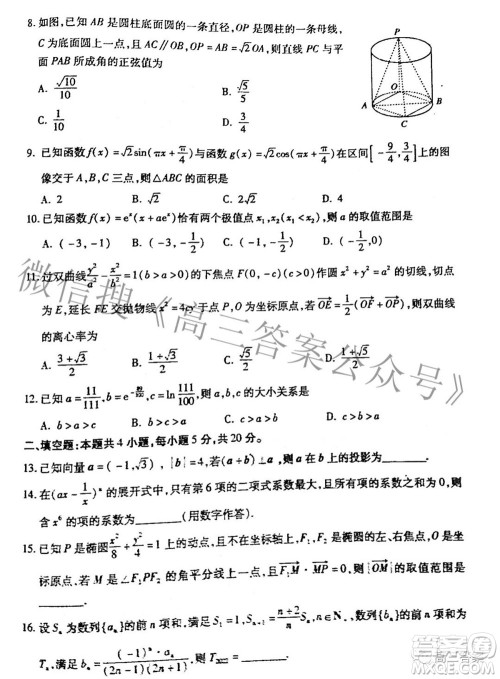 8. 如图,已知 AB 是圆柱底面圆的一条直径,OP 是圆柱的一条母线,
C 为底面圆上一点,且 AC∥OB,OP=√2OA,则直线 PC 与平
面 PAB 所成角的正弦值为
A. √10/10 B. √5/5
C. 1/10 D. 3/4
P
O
A
B
C
9. 已知函数 f(x)=√2sin(πx+π/4)与函数 g(x)=√2cos(πx+π/4)在区间[-9/4,3/4]上的图
像交于 A,B,C 三点,则△ABC 的面积是
A. 2 B. √2 C. 2√2 D. 4
10. 已知函数 f(x)=eˣ(x+aeˣ)恰有两个极值点 x₁,x₂(x₁<x₂),则 a 的取值范围是
A. (-3,-1) C. (-∞,1/2) D. (-1/2,0)
11. 过双曲线 y²/a²-x²/b²=1(b>a>0)的下焦点 F(0,-c)(c>0)作圆 x²+y²= 的切线,切点
为 E,延长 FE 交抛物线 x²=4cy 于点 P,O 为坐标原点,若 OE=1/2(OF+OP),则双曲线
的离心率为
A. (3+√3)/2 B. (1+√5)/2 C. √3/2 D. √5/2
12. 已知 a=11/111,b= ,c=ln111/100,则 a,b,c 的大小关系是
A. b>a>c B. b>c>a C. a>b>c D. c>b>a
二、填空题:本题共 4 小题,每小题 5 分,共 20 分。
13. 已知向量 a=(-1,√3),|b|=4,若(a+b)⊥a,则 b 在 a 上的投影为________.
14. 在(ax-1/x)ⁿ 的展开式中,只有第 6 项的二项式系数最大,且所有项的系数之和为 0,则
含 x⁶ 的项的系数为________(用数字作答).
15. 已知 P 是椭圆 x²/8+y²/4=1 上一动点,且不在坐标轴上,F₁,F₂ 是椭圆的左、右焦点,O 为
坐标原点,若 M 是∠F₁PF₂ 的角平分线上一点,且 F₁M·MP=0,则|OM|的取值范围
是________.
16. 设 Sₙ 为数列{aₙ}的前 n 项和,满足 a₁=1, n∈N,其前 n 项和为
Tₙ,满足 bₙ=(-1)ⁿ·aₙ/((2n-1)(2n+1)),则 T₂₀₂₂=________.
微信搜《高三答案公众号》